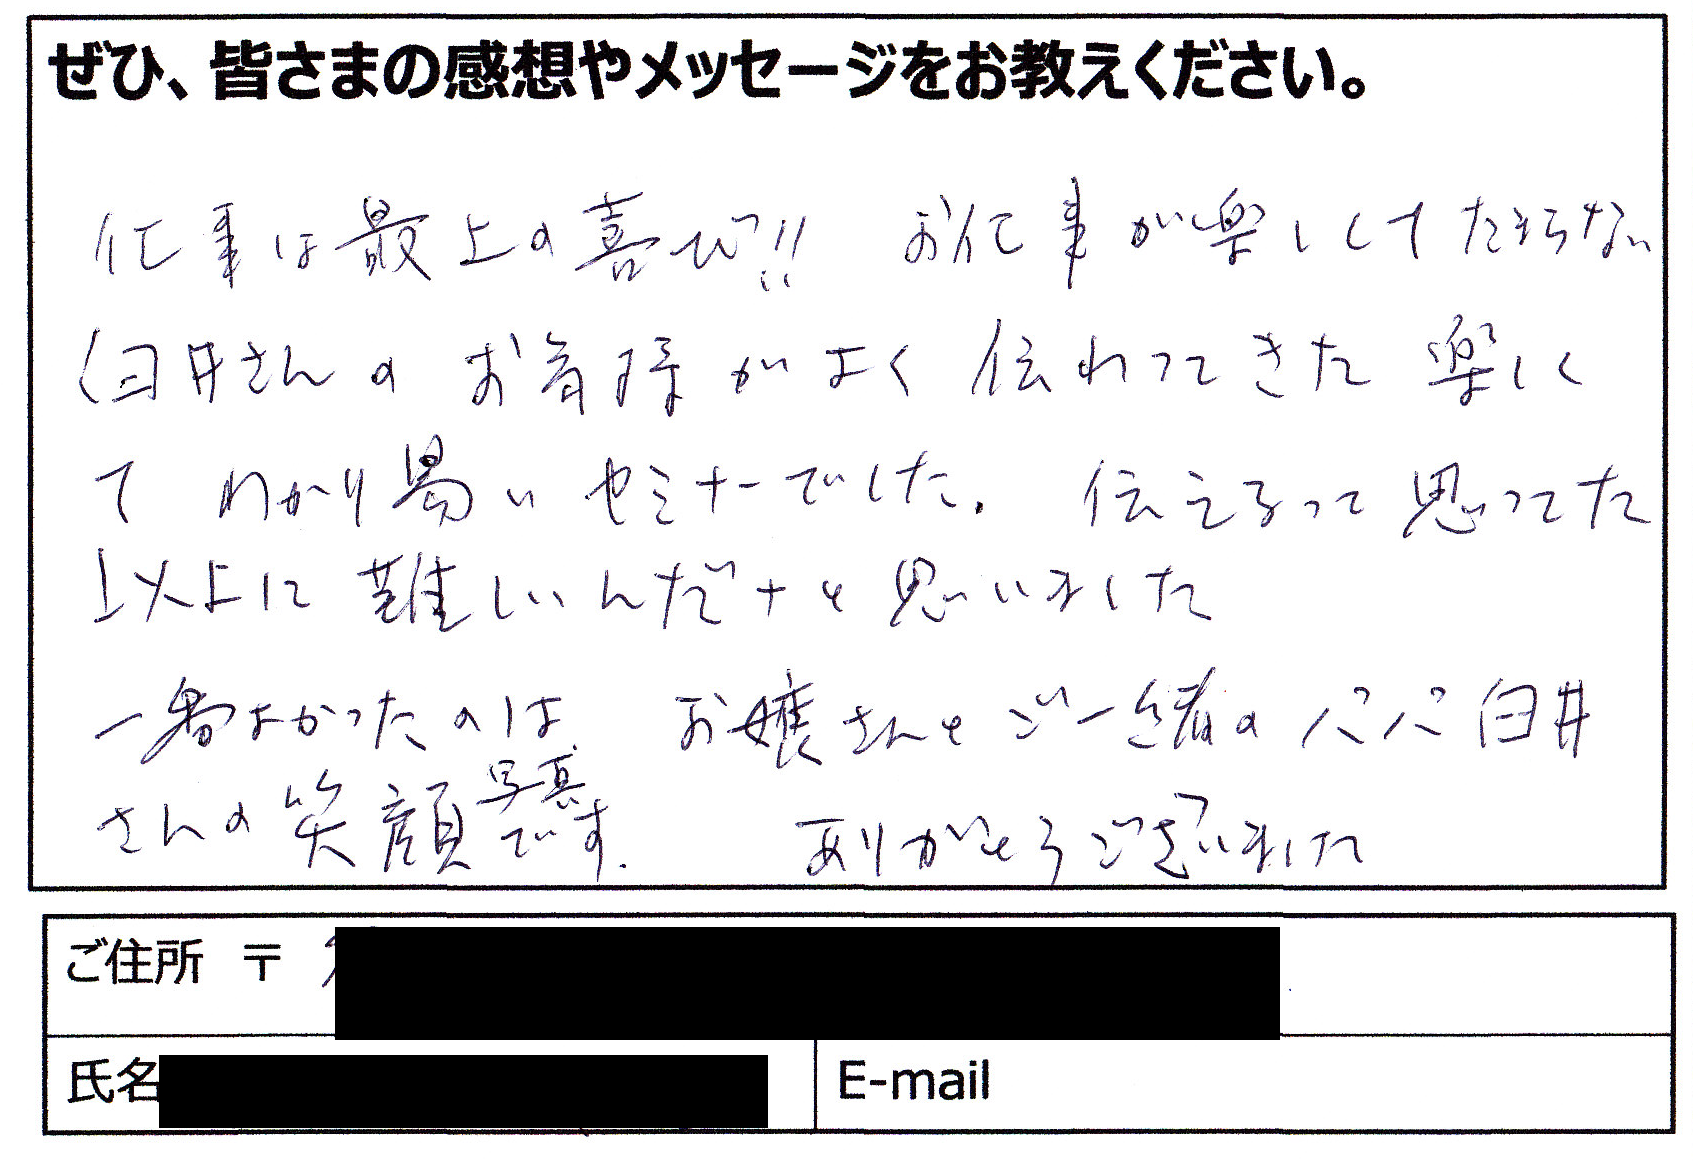 ぜひ、皆さまの感想やメッセージをお教えください。
仕事は最上の喜び!! お仕事が楽しくてたまらない
臼井さんのお客様がよく伝わってきた楽しく
て わかり易いセミナーでした。 伝えるって思ってた
以上に難しいんだナと思いました
一番よかったのは、お嬢さんとご一緒のパパ臼井
さんの笑顔写真です. ありがとうございました
ご住所 〒
氏名
E-mail